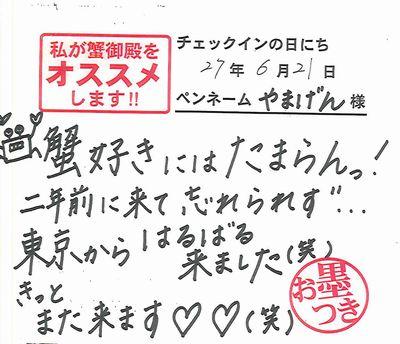 私が蟹御殿を
オススメ
します!!
チェックインの日にち
27年6月21日
ペンネーム やまげん 様
蟹好きにはたまらんっ!
二年前に来て忘れられず…
東京からはるばる
来ました(笑)
きっと
また来ます♡♡(笑)
お墨つき